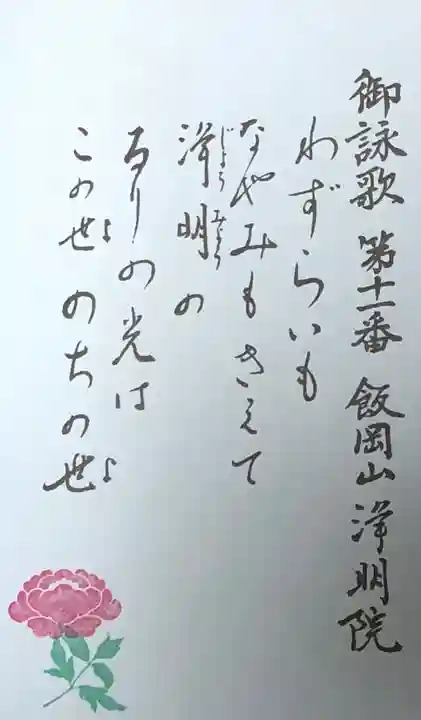 御詠歌 第十一番 飯岡山 浄明院
わずらいも
なやみもきえて
浄明の
じょうみょう
るりの光は
この世のちの世
よ
よ